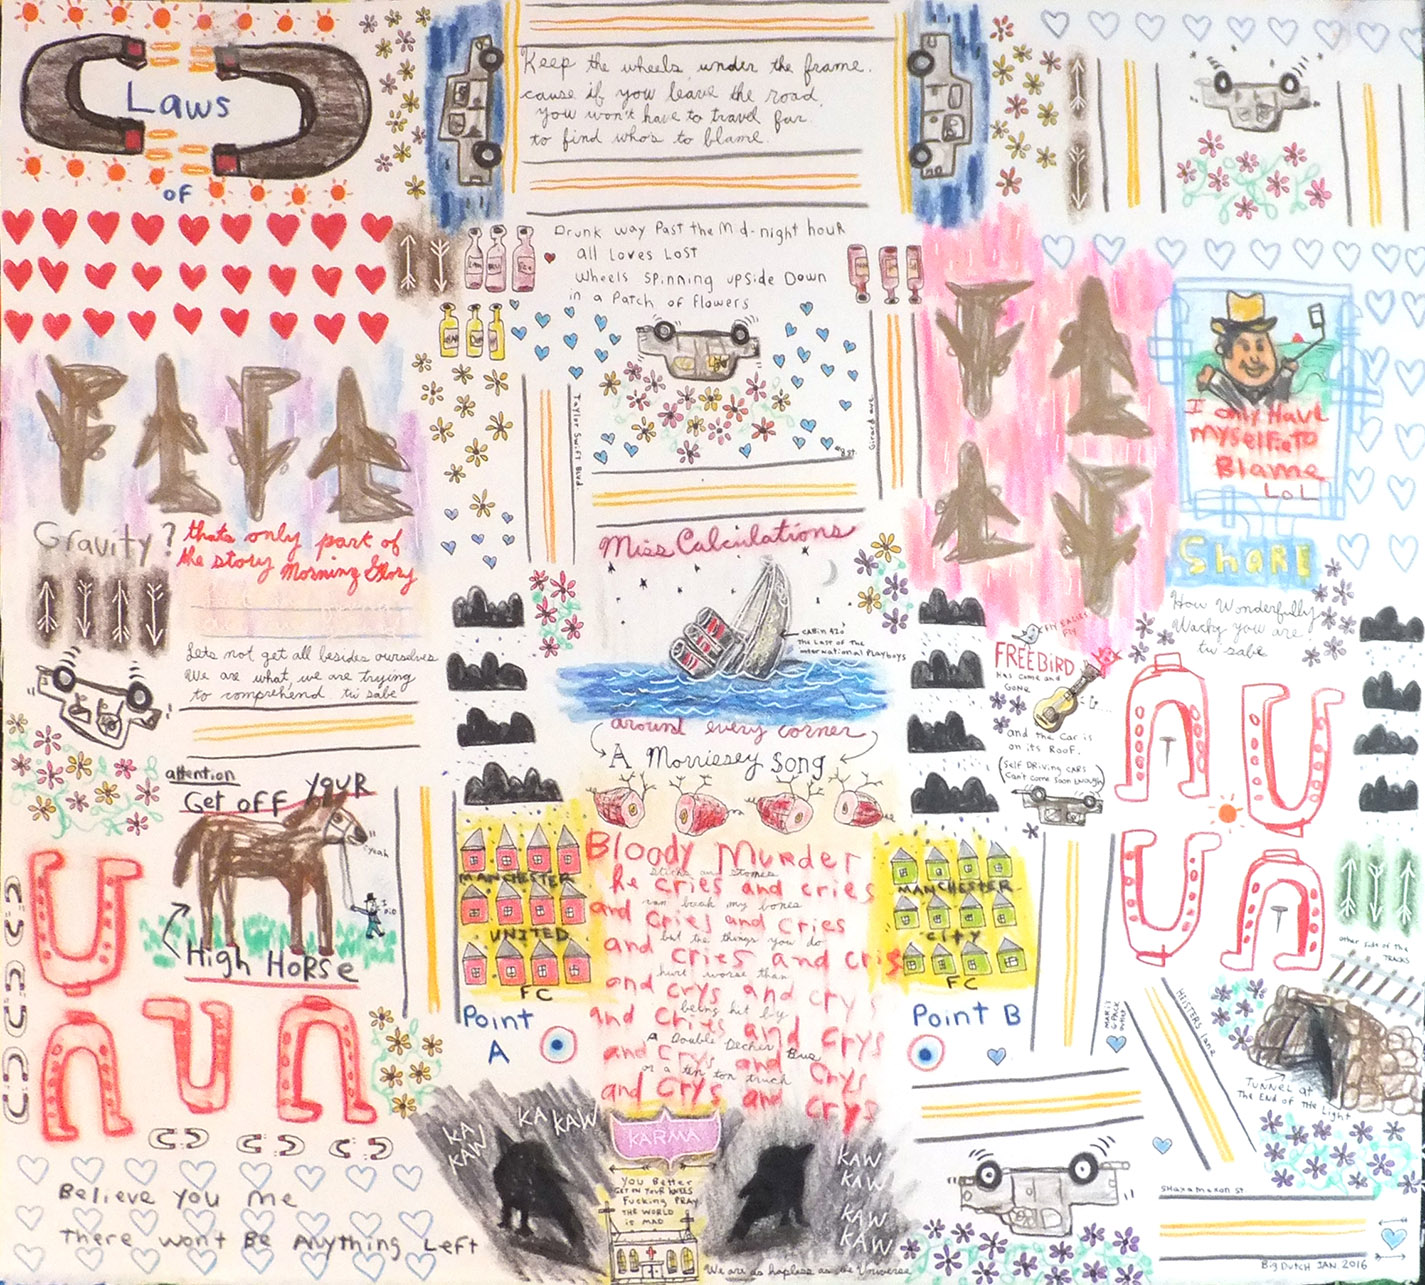 Laws
of
Keep the wheels under the frame.
cause if you leave the road,
you won't have to travel far
to find who's to blame.
Drunk way Past the Mid-night hour
all Loves Lost
wheels Spinning upside Down
in a Patch of Flowers
Taylor Swift Blvd.
Girard ave.
I only Have
my selfie To
Blame
LOL
SHARE
How Wonderfully
Wacky you are
tu sabe
Gravity?
thats only part of
the story Morning Glory
Lets not get all besides ourselves
We are what we are trying
to comprehend. tu sabe
Miss Calculations
cabin 420
The Last of the
international Playboys
around every corner
A Morrissey Song
FREEBIRD
Has come and
Gone
and the car is
on its Roof.
(Self Driving cars
Can't come soon enough)
attention
Get off your
yeah
I DID
High Horse
MANCHESTER
UNITED
FC
Point
A
Bloody Murder
sticks and stones
he cries and cries
can break my bones
and cries and cries
but the things you do
and cries and cries
hurt worse than
and crys and crys
being hit by
and cries and crys
A Double Decker Bus
and crys and crys
or a ten ton truck
and crys and crys
MANCHESTER
CITY
FC
Point B
other side of the
TRACKS
Heisters lane
TUNNEL at
The End of the Light
KA
KAW
KA KAW
KARMA
You Better
GET ON YOUR KNEES
Fucking PRAY
THE WORLD
is MAD
KAW
KAW
KAW
KAW
We are as hapless as the Universe
Believe you me
There won't Be Anything Left
Shaxamaxon St
Big Dutch JAN 2016